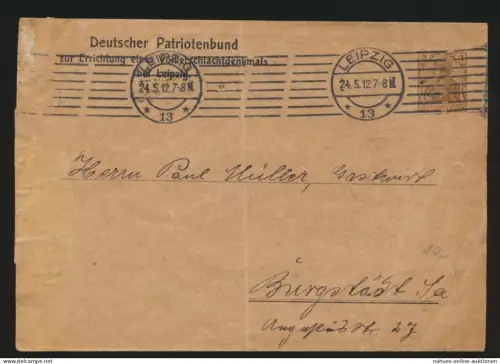 Deutscher Patriotenbund
zur Errichtung eines Völkerschlachtdenkmals
bei Leipzig.
LEIPZIG
24.5.12.7-8
* 13 *
LEIPZIG
24.5.12.7-8
* 13 *
Herrn Paul Müller, Gastwirt
Burgstädt Sa
Augustus Str. 27
©natves-online-auktionen